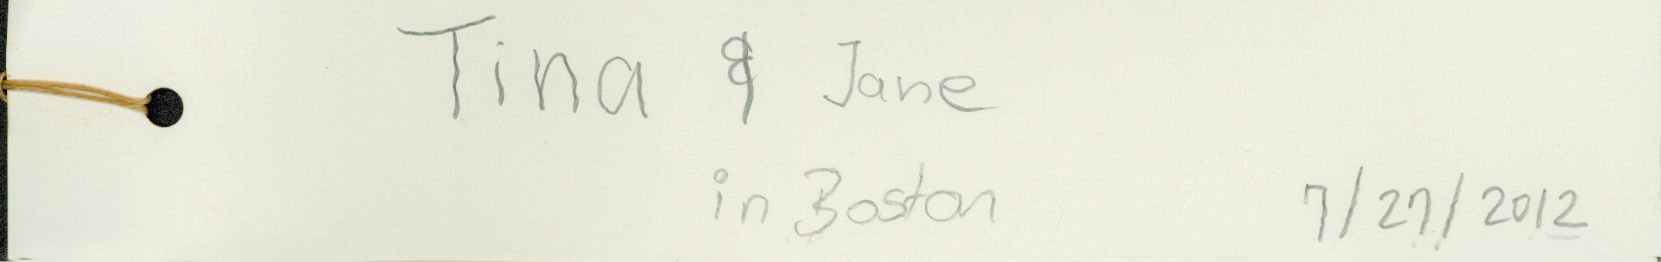 Tina & Jane
in Boston
7/27/2012